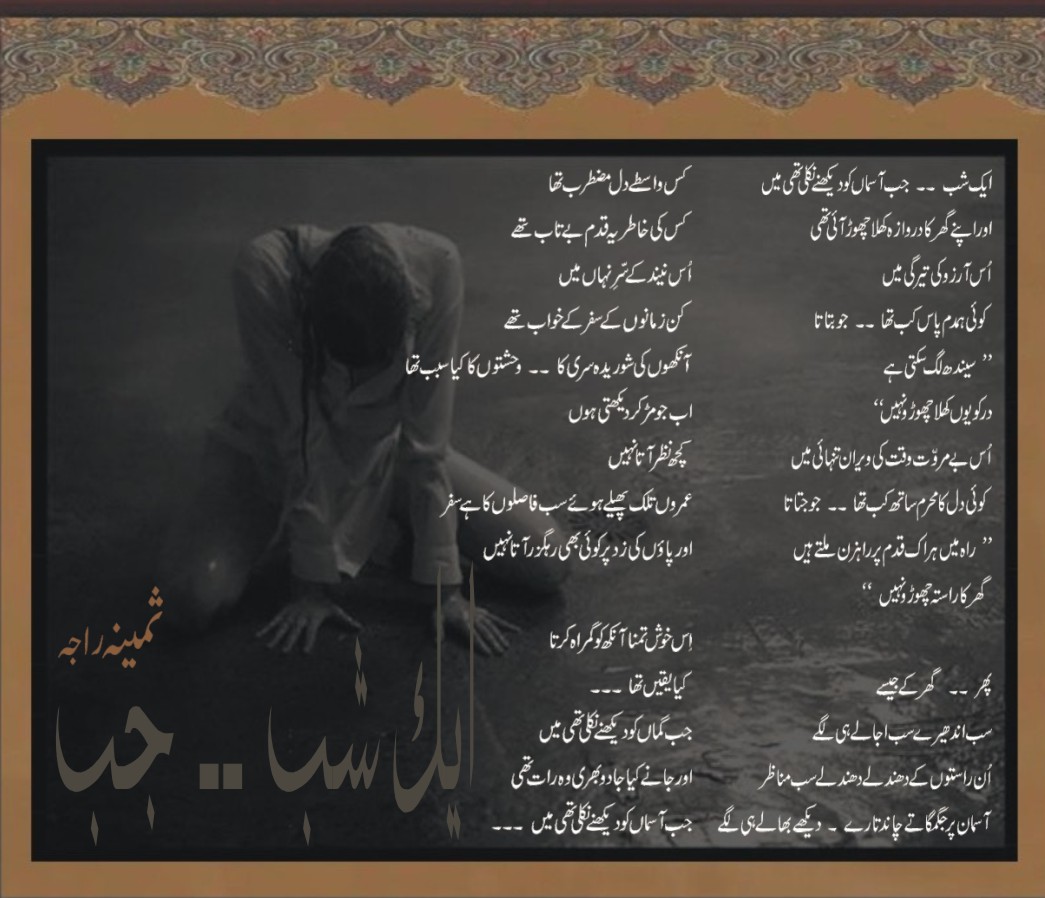 ایک شب ۔۔ جب آسماں کو دیکھنے نکلی تھی میں
اور اپنے گھر کا دروازہ کھلا چھوڑ آئی تھی
اُس آرزو کی تیرگی میں
کوئی ہمدم پاس کب تھا ۔۔ جو بتاتا
’’ سیندھ لگ سکتی ہے
در کو یوں کھلا چھوڑو نہیں‘‘
اُس بے مروّت وقت کی ویران تنہائی میں
کوئی دل کا محرم ساتھ کب تھا ۔۔ جو جتاتا
’’ راہ میں ہر اک قدم پر راہزن ملتے ہیں
گھر کا راستہ چھوڑو نہیں ‘‘
پھر ۔۔ گھر کے جیسے
سب اندھیرے سب اجالے ہی لگے
اُن راستوں کے دھندلے دھندلے سب مناظر
آسمان پر جگمگاتے چاند تارے ۔ دیکھے بھالے ہی لگے
کس واسطے دل مضطرب تھا
کس کی خاطر یہ قدم بے تاب تھے
اُس نیند کے سّرِ نہاں میں
کن زمانوں کے سفر کے خواب تھے
آنکھوں کی شوریدہ سری کا ۔۔ وحشتوں کا کیا سبب تھا
اب جو مڑ کر دیکھتی ہوں
کچھ نظر آتا نہیں
عمروں تلک پھیلے ہوئے سب فاصلوں کا ہے سفر
اور پاؤں کی زد پر کوئی بھی رہگزر آتا نہیں
اِس خوش تمنا آنکھ کو گمراہ کرتا
کیا یقیں تھا ۔۔۔
جب گماں کو دیکھنے نکلی تھی میں
اور جانے کیا جادو بھری وہ رات تھی
جب آسماں کو دیکھنے نکلی تھی میں ۔۔۔
ثمینہ راجہ
ایک شب ۔۔ جب